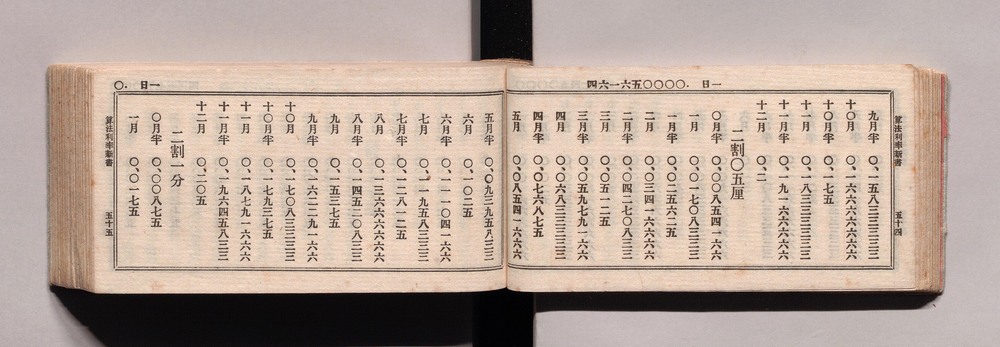 一日 .〇〇〇〇五六一六四
算法利率新書 五十四
九月半 〇、一五八三三三三三
十〇月 〇、一六六六六六六六
十〇月半 〇、一七五
十一月 〇、一八三三三三三三
十一月半 〇、一九一六六六六六
十二月 〇、二
二割〇五厘
〇月半 〇、〇〇八五四一六六
一月 〇、〇一七〇八三三三
一月半 〇、〇二五六二五
二月 〇、〇三四一六六六六
二月半 〇、〇四二七〇八三三
三月 〇、〇五一二五
三月半 〇、〇五九七九一六六
四月 〇、〇六八三三三三三
四月半 〇、〇七六八七五
五月 〇、〇八五四一六六六
一日 .〇
五月半 〇、〇九三九五八三三
六月 〇、一〇二五
六月半 〇、一一一〇四一六六
七月 〇、一一九五八三三三
七月半 〇、一二八一二五
八月 〇、一三六六六六六六
八月半 〇、一四五二〇八三三
九月 〇、一五三七五
九月半 〇、一六二二九一六六
十〇月 〇、一七〇八三三三三
十〇月半 〇、一七九三七五
十一月 〇、一八七九一六六六
十一月半 〇、一九六四五八三三
十二月 〇、二〇五
二割一分
〇月半 〇、〇〇八七五
一月 〇、〇一七五
算法利率新書 五十五